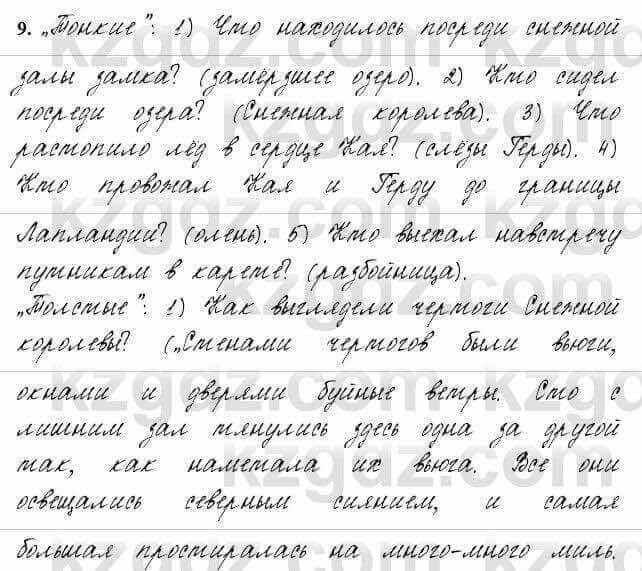 9. „Тонкие”: 1) Что находилось посреди снежной
залы замка? (замёрзшее озеро). 2) Кто сидел
посреди озера? (Снежная королева). 3) Что
растопило лёд в сердце Кая? (слёзы Герды). 4)
Кто провожал Кая и Герду до границы
Лапландии? (олень). 5) Кто выехал навстречу
путникам в карете? (разбойница).
„Толстые”: 1) Как выглядели чертоги Снежной
королевы? („Стенами чертогов были вьюги,
окнами и дверями буйные ветры. Сто с
лишним зал тянулись здесь одна за другой
так, как наметала их вьюга. Все они
освещались северным сиянием, и самая
большая простиралась на много-много миль.